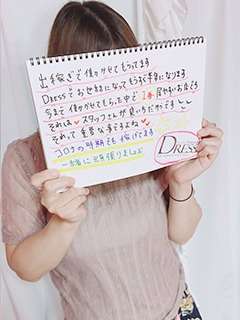 出稼ぎで働かせてもらってます
DRESSでお世話になってもうすぐ半年になります
今まで働かせてもらった中で1番居やすいお店です
それは♥スタッフさんが良いからです
それって重要な事ですよね♥
コロナの時期でも稼げてます
一緒に頑張りましょう
DRESS